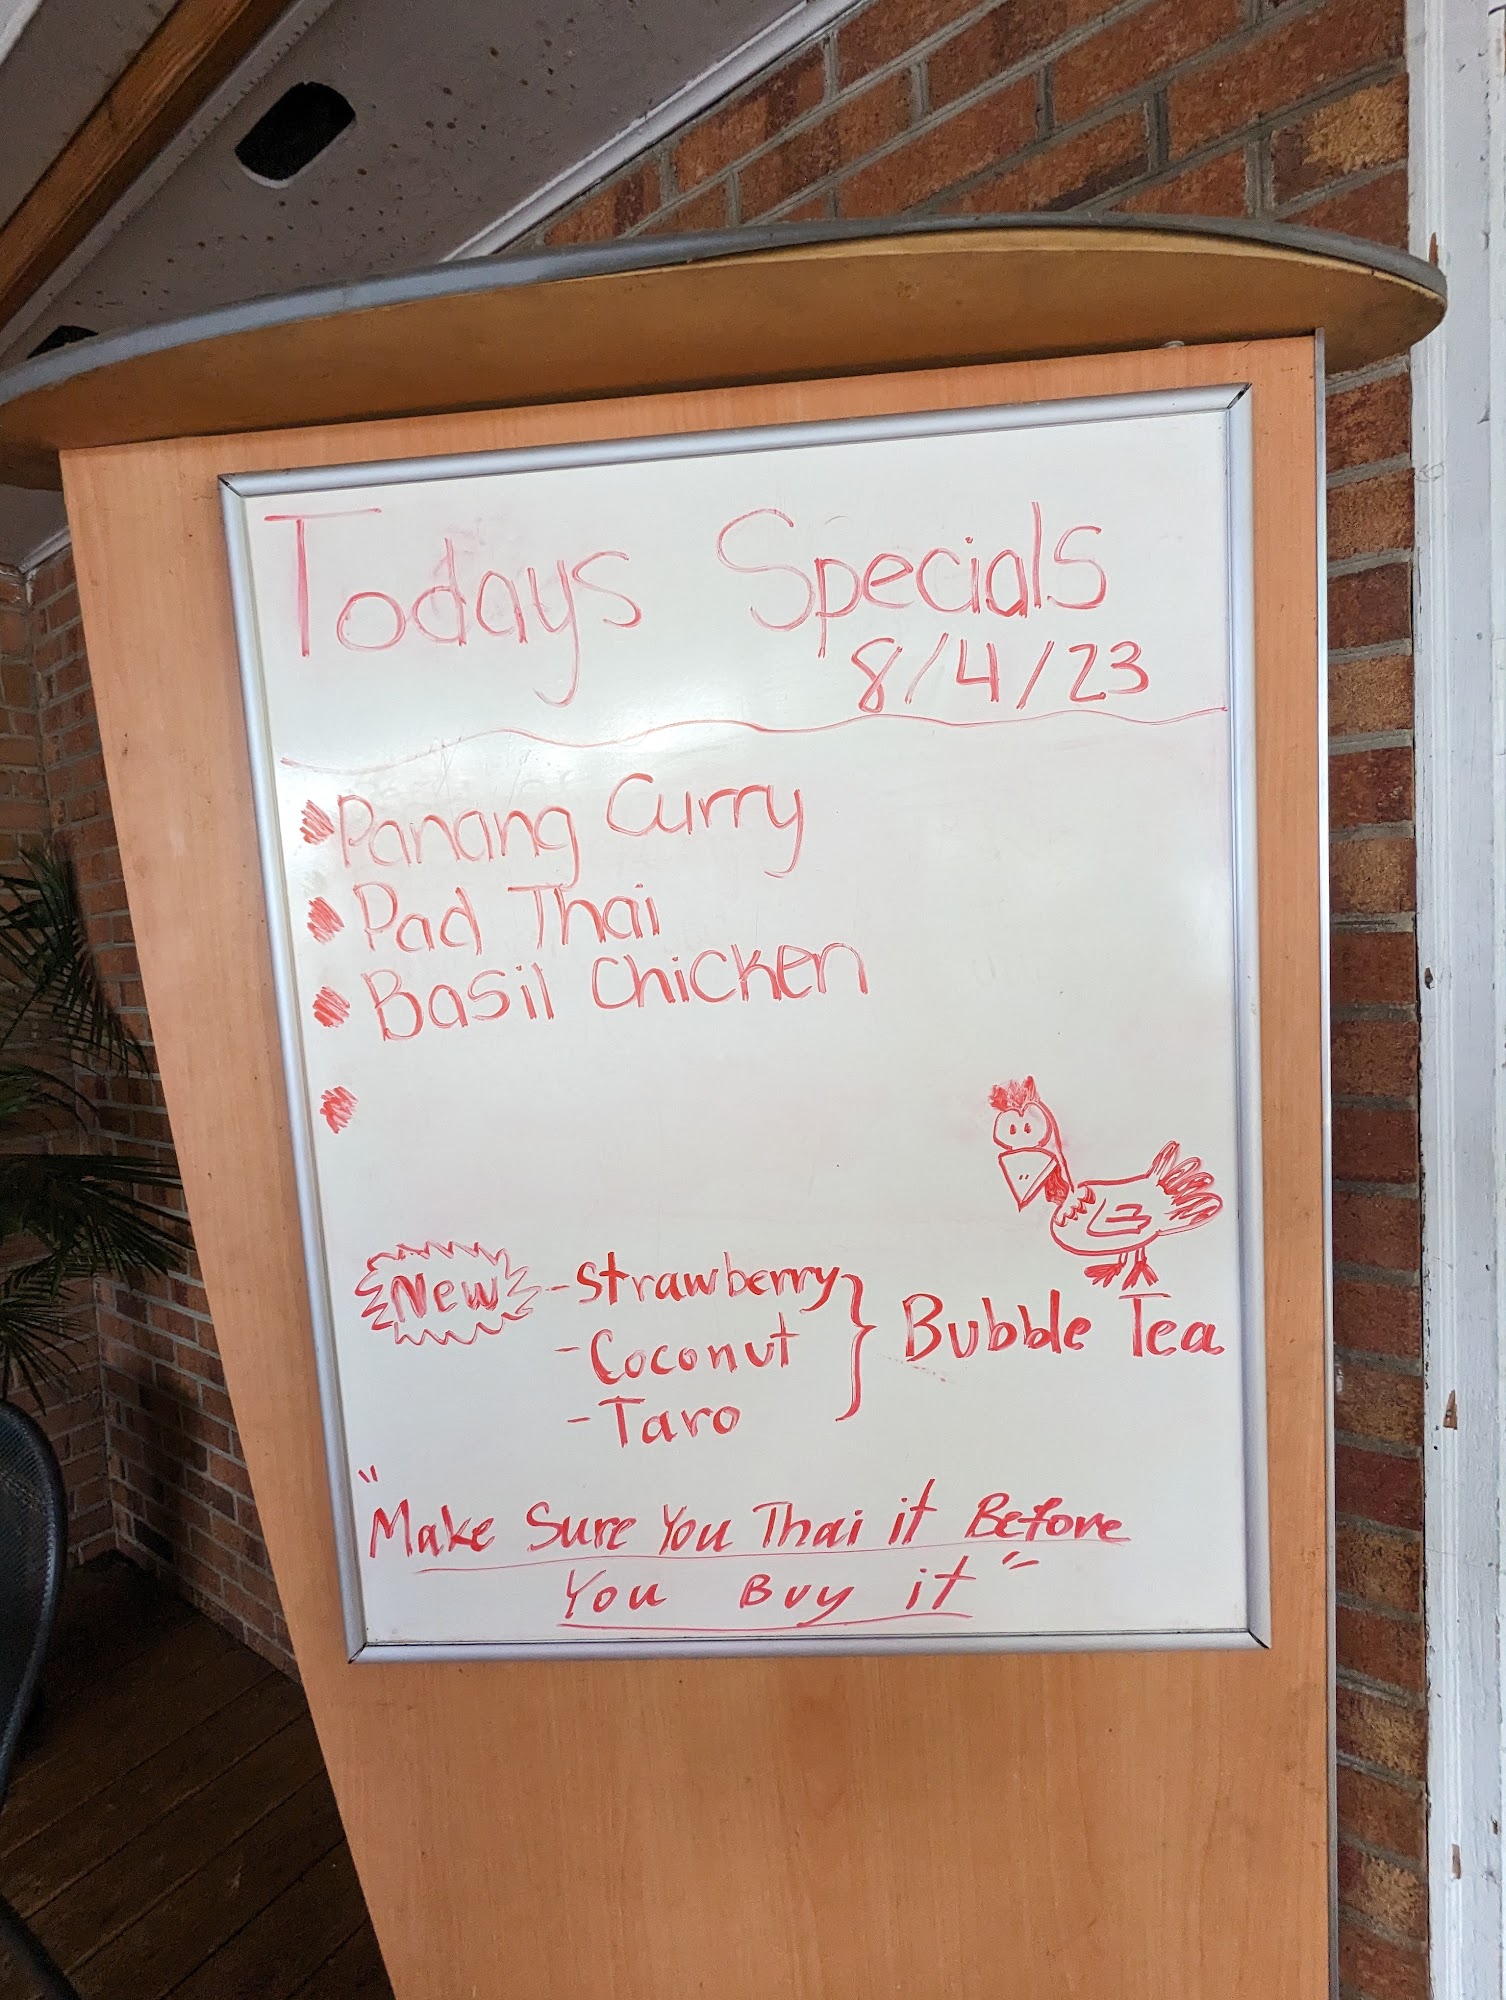 Todays Specials
8/4/23
Panang Curry
Pad Thai
Basil Chicken
New - Strawberry
- Coconut } Bubble Tea
- Taro
"Make Sure You Thai it Before
You Buy it"